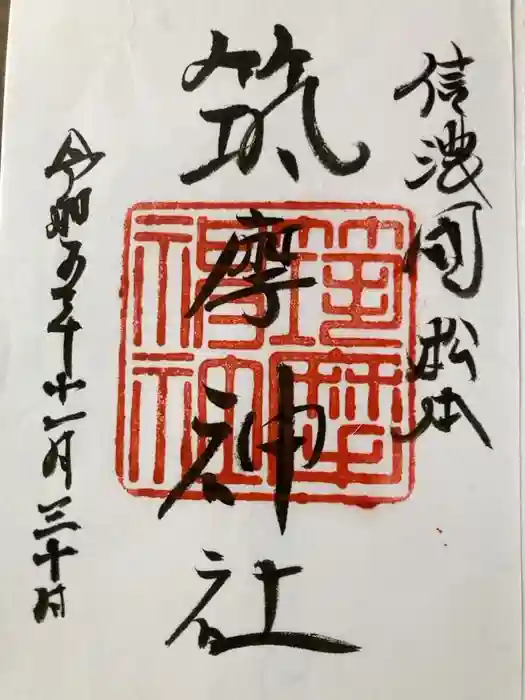 信濃国松本
筑摩神社
筑摩
神社
令和五年十一月三十日